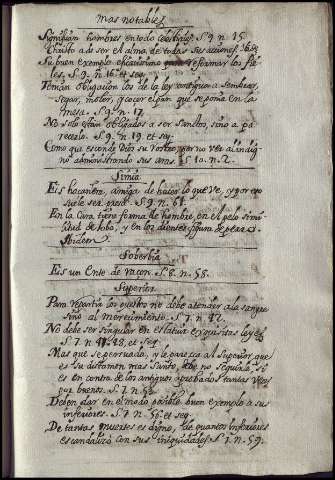 mas notables
Significan hombres en todo celestiales. S. 9. n. 15.
Christo a de ser el alma de todas sus acciones. ibi
Su buen exemplo es para reformar los fie-
les, S. 9. n. 16. et seq.
Tenian obligacion los de la ley antigua a sembrar,
segar, moler, y cocer el pan que se ponia en la
mesa. S. 9. n. 17.
No solo estan obligados a ser Santos, sino a pa-
recelo. S. 9. n. 19. et seq.
Como que esconde Dios su rostro por no ver al indig-
no administrando sus aras. S. 10. n. 2.
Simia
Eis amigo de hacer lo que ve, y por eso
suele ser presa. S. 9. n. 61.
En la cara tiene forma de hombre, en el pelo simi-
litud de lobo, y en los dientes figura de
Ibidem
Soberbia
Eis un Ente de racon. S. 8. n. 58.
Superior
Para repartir los puestos no debe atender a la sangre
sino al merecimiento. S. 7. n. 42.
No debe ser singular en estatuir exquisitas leyes
S. 7. n. 48. et seq.
Mas que se persuada, y le parezca al Superior que
es su dictamen mas Santo, debe no seguirle, si
es en contra de los antiguos aprobados tantas veces
por bueno. S. 7. n.
Deben dar en el modo posible buen exemplo a sus
inferiores. S. 7. n. 56. et seq.
De tantas muertes es digno, que quantos inferiores
escandaliza con sus iniquidades. S. 7. n. 59.